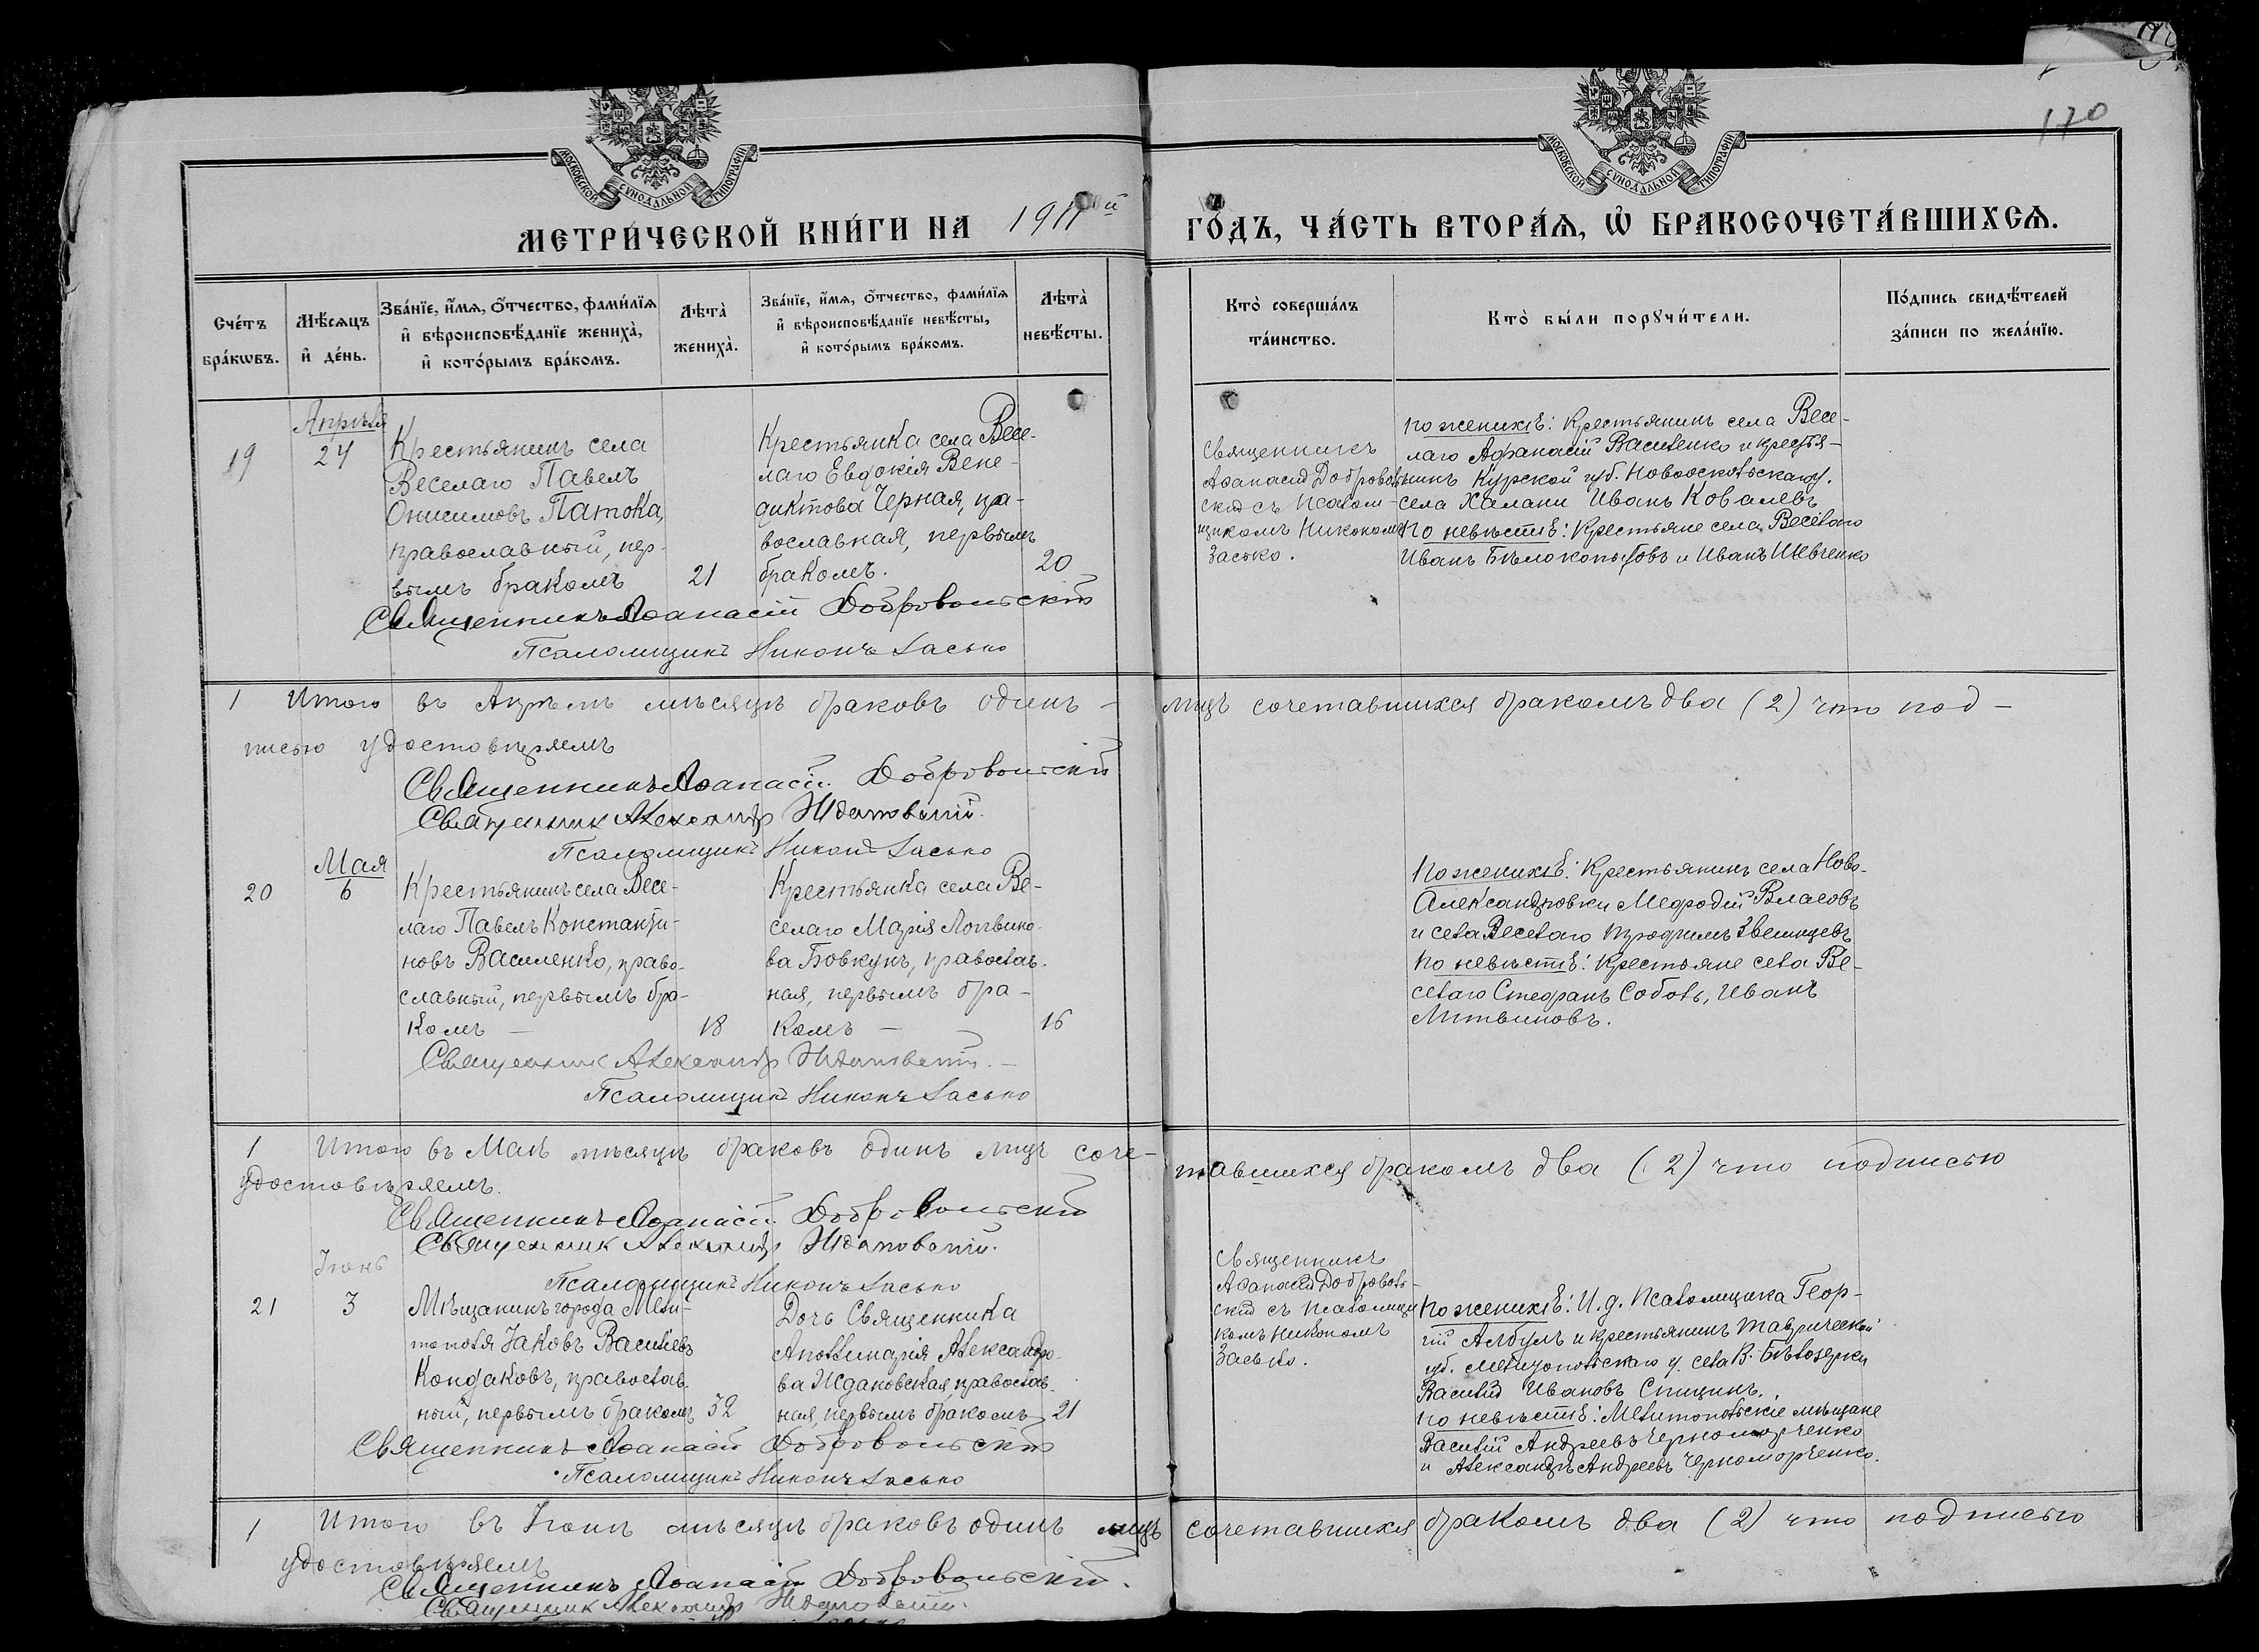 170
МОСКОВСКОЙ СѴНОДАЛЬНОЙ ТИПОГРАФІИ
МОСКОВСКОЙ СѴНОДАЛЬНОЙ ТИПОГРАФІИ
МЕТРИ́ЧЕСКОЙ КНИ́ГИ НА 1911й ГО́ДЪ, ЧА́СТЬ ВТОРА́Ѧ, Ѽ БРАКОСОЧЕТА́ВШИХСѦ.
Сче́тъ
бра́кѡвъ.
Мѣ́сѧцъ
и҆ де́нь.
Зва́нїе, и҆́мѧ, ѻ҆́тчество, фами́лїѧ
и҆ вѣроисповѣ́данїе жениха̀,
и҆ кото́рымъ бра́комъ.
Лѣта̀
жениха̀.
Зва́нїе, и҆́мѧ, ѻ҆́тчество, фами́лїѧ
и҆ вѣроисповѣ́данїе невѣ́сты,
и҆ кото́рымъ бра́комъ.
Лѣта̀
невѣ́сты.
Кто̀ соверша́лъ
та́инство.
Кто̀ бы́ли порꙋчи́тели.
По́дпись свидѣ́телей
за́писи по жела́нїю.
19
Апрѣля
24
Крестьянинъ села
Веселаго Павелъ
Онисимовъ Патока,
православный, пер-
вымъ бракомъ
21
Крестьянка села Весе-
лаго Евдокія Вене-
диктова Черная, пра-
вославная, первымъ
бракомъ.
20
Священникъ
Аѳанасій Доброволь-
скій съ псалом-
щикомъ Никономъ
Засько.
По женихѣ: Крестьянинъ села Весе-
лаго Афанасій Василенко и крестья-
нинъ Курской губ. Новооскольскаго у.
села Халани Иванъ Ковалевъ
По невѣстѣ: Крестьяне села Веселаго
Иванъ Бѣлокопытовъ и Иванъ Шевченко
Священникъ Аѳанасій Добровольскій
Псаломщикъ Никонъ Засько
1 Итого въ Апрѣлѣ мѣсяцѣ браковъ одинъ – лицъ сочетавшихся бракомъ два (2) что под-
писью удостовѣряемъ
Священникъ Аѳанасій Добровольскій
Священник Александр Ждановскій.
Псаломщикъ Никонъ Засько
20
Мая
6
Крестьянинъ села Весе-
лаго Павелъ Константи-
новъ Василенко, право-
славный, первымъ бра-
комъ –
18
Крестьянка села Ве-
селаго Марія Логвино-
ва Бовкунъ, православ-
ная, первымъ бра-
комъ –
16
По женихѣ: Крестьянинъ села Ново-
Александровки Мефодій Власовъ
и села Веселаго Трофимъ Звенищевъ
По невѣстѣ: Крестьяне села Ве-
селаго Стефанъ Соболь, Иванъ
Литвиновъ.
Священник Александр Ждановскій. –
Псаломщикъ Никонъ Засько
1 Итого въ Маѣ мѣсяцѣ браковъ одинъ лицъ соче-тавшихся бракомъ два (2) что подписью
удостовѣряемъ.
Священникъ Аѳанасій Добровольскій
Священник Александр Ждановскій.
Псаломщикъ Никонъ Засько
21
Іюнь
3
Мѣщанинъ города Мели-
тополя Іаковъ Васильевъ
Кондаковъ, православ-
ный, первымъ бракомъ
32
Дочь Священника
Аполлинарія Александро-
ва Ждановская, православ-
ная, первымъ бракомъ
21
Священникъ
Аѳанасій Доброволь-
скій съ псаломщи-
комъ Никономъ
Засько.
По женихѣ: И. д. псаломщика Геор-
гій Албулъ и крестьянинъ Таврической
губ. Мелитопольскаго у. села В. Бѣлозерки
Василій Ивановъ Спицинъ.
По невѣстѣ: Мелитопольскіе мѣщане
Василій Андреевъ Черноморченко
и Александръ Андреевъ Черноморченко.
Священникъ Аѳанасій Добровольскій
Псаломщикъ Никонъ Засько
1 Итого въ Іюнѣ мѣсяцѣ браковъ одинъ лицъ сочетавшихся бракомъ два (2) что подписью
удостовѣряемъ
Священникъ Аѳанасій Добровольскій.
Священник Александр Ждановскій.